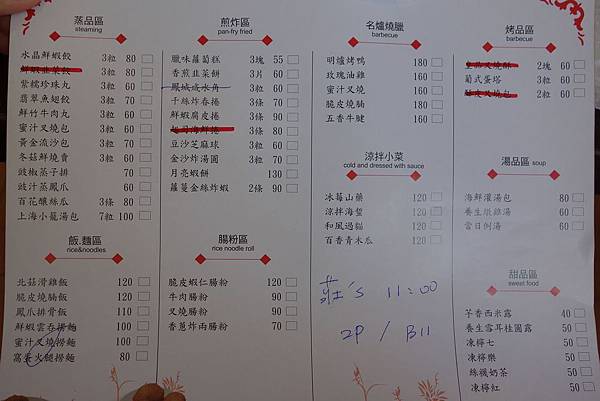 蒸品區
steaming
水晶鮮蝦餃 3粒 80
鮮蝦韭菜餃 3粒 80
紫糯珍珠丸 3粒 60
翡翠魚翅餃 3粒 70
鮮竹牛肉丸 3粒 60
蜜汁叉燒包 3粒 60
黃金流沙包 3粒 70
冬菇鮮燒賣 3粒 60
豉椒蒸子排 70
豉汁蒸鳳爪 60
百花釀絲瓜 3條 80
上海小籠湯包 7粒 100
飯.麵區
rice&noodles
北菇滑雞飯 120
脆皮燒腩飯 120
鳳爪排骨飯 110
鮮蝦雲吞撈麵 100
蜜汁叉燒撈麵 100
窩蛋火腿撈麵 80
煎炸區
pan-fry fried
臘味蘿蔔糕 3塊 55
香煎韭菜餅 3片 60
鳳城咸水角 3粒 60
千絲炸春捲 3條 70
鮮蝦腐皮捲 3條 90
起司海鮮捲 3條 80
豆沙芝麻球 3粒 60
金沙炸湯圓 3粒 70
月亮蝦餅 130
蘿蔓金絲炸蝦 2條 90
腸粉區
rice noodle roll
脆皮蝦仁腸粉 120
牛肉腸粉 90
叉燒腸粉 90
香蔥炸兩腸粉 70
名爐燒臘
barbecue
明爐烤鴨 180
玫瑰油雞 160
蜜汁叉燒 160
脆皮燒腩 160
五香牛腱 160
涼拌小菜
cold and dressed with sauce
冰莓山藥 120
涼拌海蜇 120
和風過貓 120
百香青木瓜 120
莊's 11:00
2P / B11
烤品區
barbecue
2塊 60
葡式蛋塔 3粒 60
2粒 60
湯品區 soup
海鮮灌湯包 80
養生燉雞湯 60
當日例湯 60
甜品區
sweet food
芋香西米露 40
養生雪耳桂圓露 50
凍檸七 50
凍檸樂 50
絲襪奶茶 50
凍檸紅 50